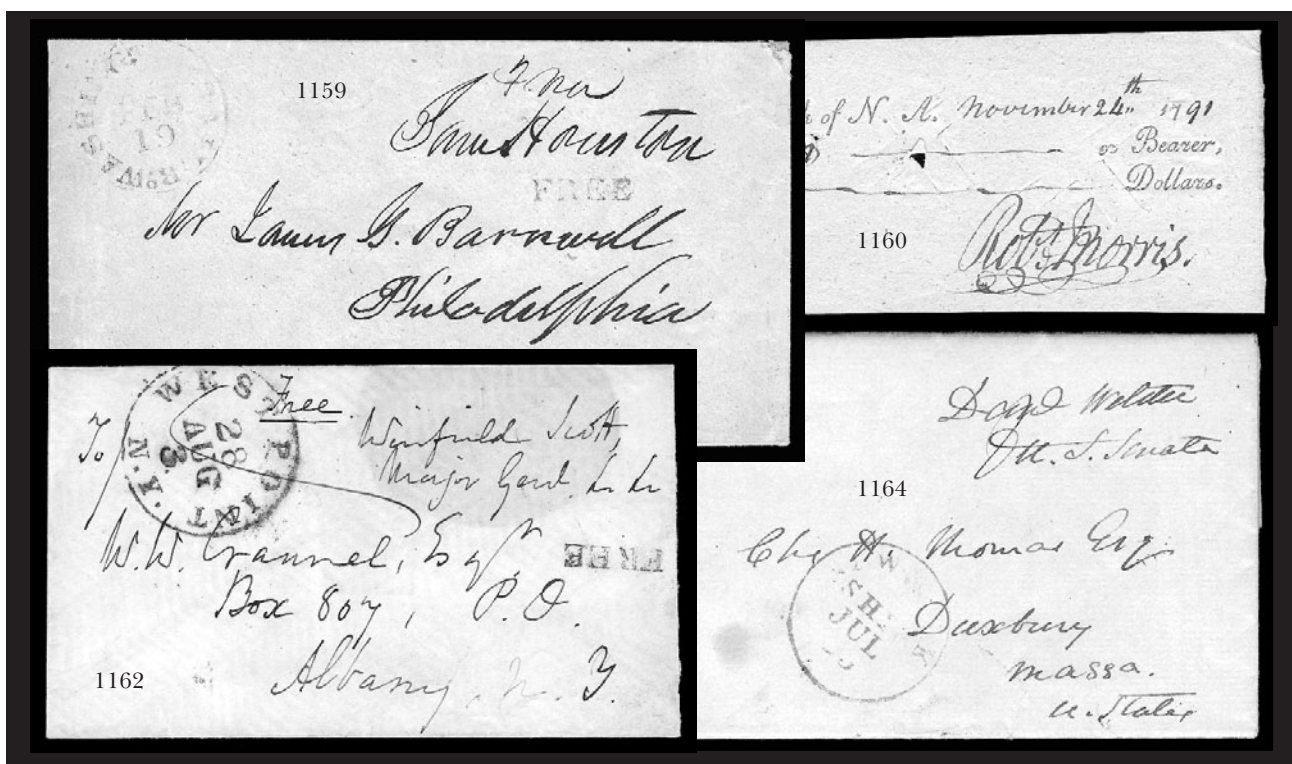 1159
Free
Sam Houston
FREE
FEB
19
Mr James G. Barnwell
Philadelphia
of N. A. November 24th 1791
or Bearer,
Dollars.
1160
Robt Morris.
WEST POINT N.Y.
28
AUG
3
Free
To
Winfield Scott,
Major Genl.
W. W. Crannel, Esqr,
FREE
Box 807, P.O.
Albany, N. Y.
1162
Danl Webster
U. S. Senate
1164
Chs H. Thomas Esq
JUL
Duxbury
Massa.
U. States